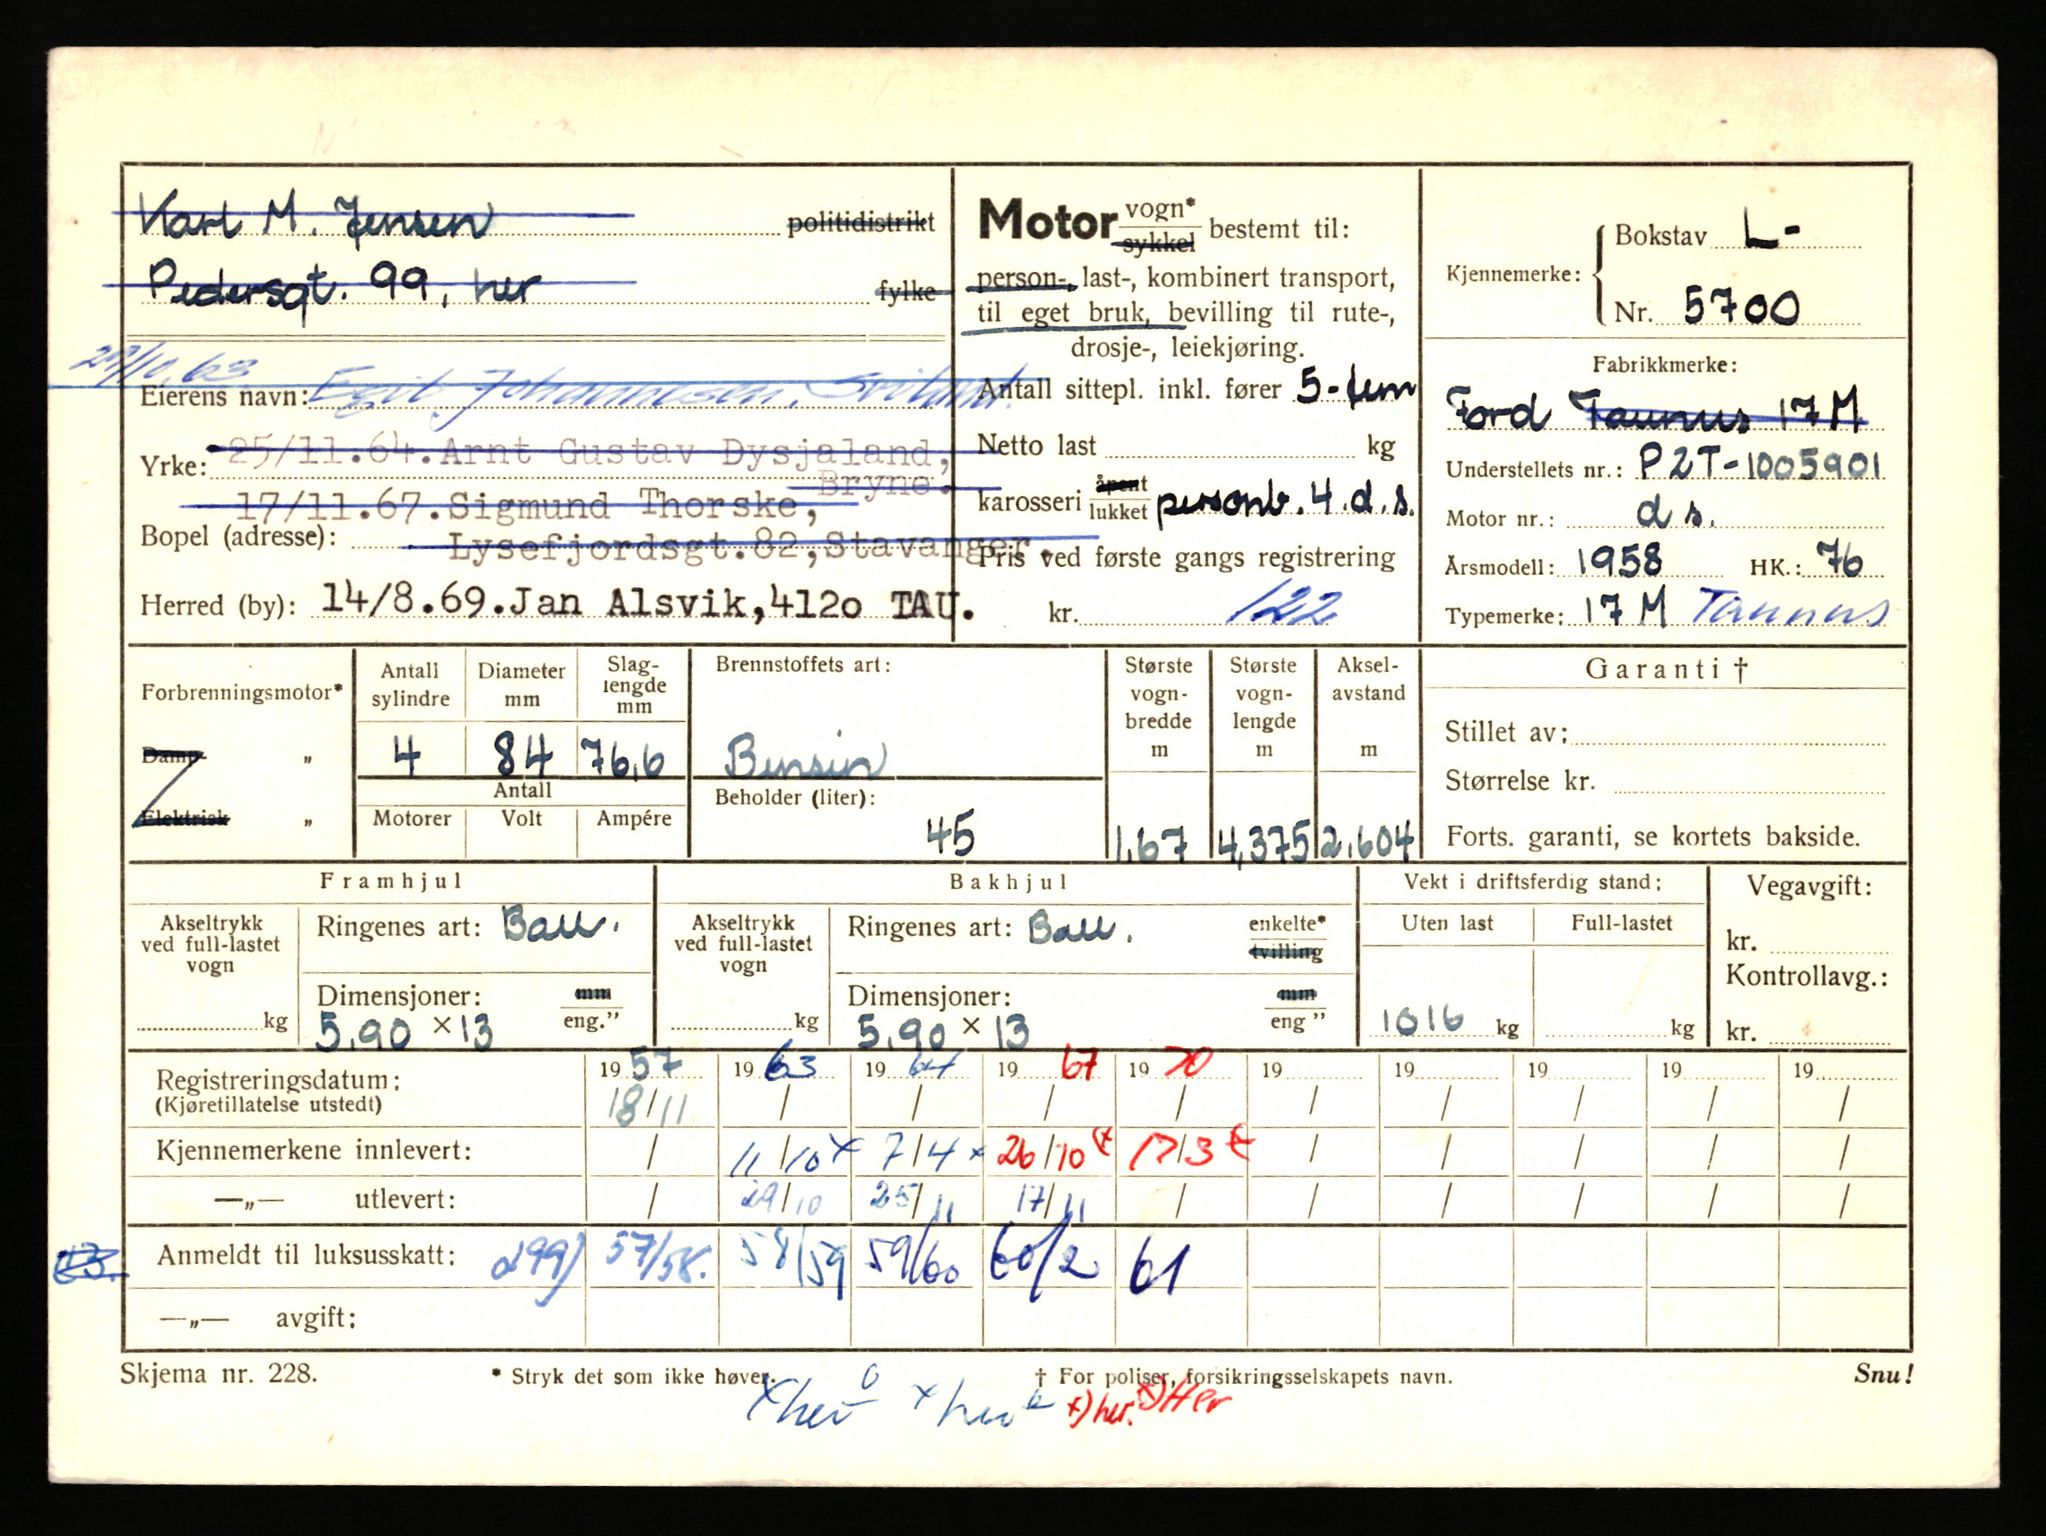 Karl M. Jensen politidistrikt
Pedersgt. 99, her fylke
29/10.63
Eierens navn: Egil Johannesen, Sviland.
Yrke: 25/11.64.Arnt Gustav Dysjaland,
Bryne.
17/11.67.Sigmund Thorske,
Bopel (adresse): Lysefjordsgt.82,Stavanger.
Herred (by): 14/8.69.Jan Alsvik,4120 TAU.
Motor vogn* sykkel bestemt til:
person-, last-, kombinert transport,
til eget bruk, bevilling til rute-,
drosje-, leiekjøring.
Antall sittepl. inkl. fører 5-fem
Netto last kg
karosseri åpent lukket personb. 4.d.s.
Pris ved første gangs registrering
kr. 122
Kjennemerke: Bokstav L-
Nr. 5700
Fabrikkmerke:
Ford Taunus 17M
Understellets nr.: P2T-1005901
Motor nr.: d s.
Årsmodell: 1958 HK.: 76
Typemerke: 17 M Taunus
Forbrenningsmotor*
Damp- „
Elektrisk „
Antall sylindre 4
Diameter mm 84
Slag-lengde mm 76,6
Antall
Motorer Volt Ampére
Brennstoffets art:
Bensin
Beholder (liter):
45
Største vogn-bredde m 1,67
Største vogn-lengde m 4,375
Aksel-avstand m 2.604
Garanti †
Stillet av:
Størrelse kr.
Forts. garanti, se kortets bakside.
Framhjul
Akseltrykk ved full-lastet vogn kg
Ringenes art: Ball.
Dimensjoner: mm eng.”
5.90 x 13
Bakhjul
Akseltrykk ved full-lastet vogn kg
Ringenes art: Ball. enkelte* tvilling
Dimensjoner: mm eng ”
5.90 x 13
Vekt i driftsferdig stand:
Uten last Full-lastet
1016 kg kg
Vegavgift:
kr.
Kontrollavg.:
kr.
Registreringsdatum: 1957 1963 1964 1967 1970 19 19 19 19 19
(Kjøretillatelse utstedt) 18/11 / / / / / / / / /
Kjennemerkene innlevert: / 11/10 x 7/4 x 26/10 x 17/3 x / / / / /
—„— utlevert: / 29/10 25/11 17/11 / / / / / /
Anmeldt til luksusskatt: 57/58. 58/59 59/60 60/2 61
—„— avgift:
Skjema nr. 228. * Stryk det som ikke høver. † For poliser, forsikringsselskapets navn. Snu!
x her x her x) her. x) Her